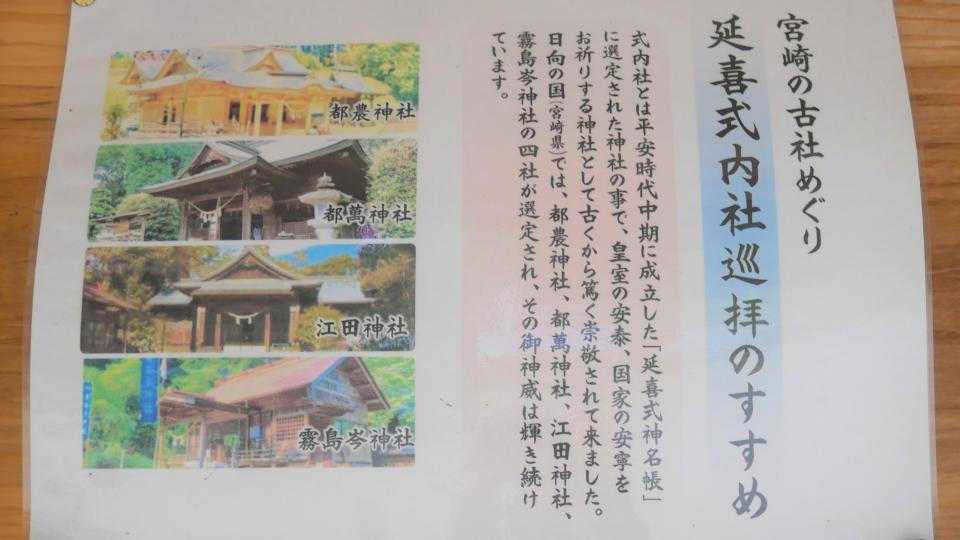 宮崎の古社めぐり
延喜式内社巡拝のすすめ
式内社とは平安時代中期に成立した「延喜式神名帳」
に選定された神社の事で、皇室の安泰、国家の安寧を
お祈りする神社として古くから篤く崇敬されて来ました。
日向の国(宮崎県)では、都農神社、都萬神社、江田神社、
霧島岑神社の四社が選定され、その御神威は輝き続け
ています。
都農神社
都萬神社
江田神社
霧島岑神社